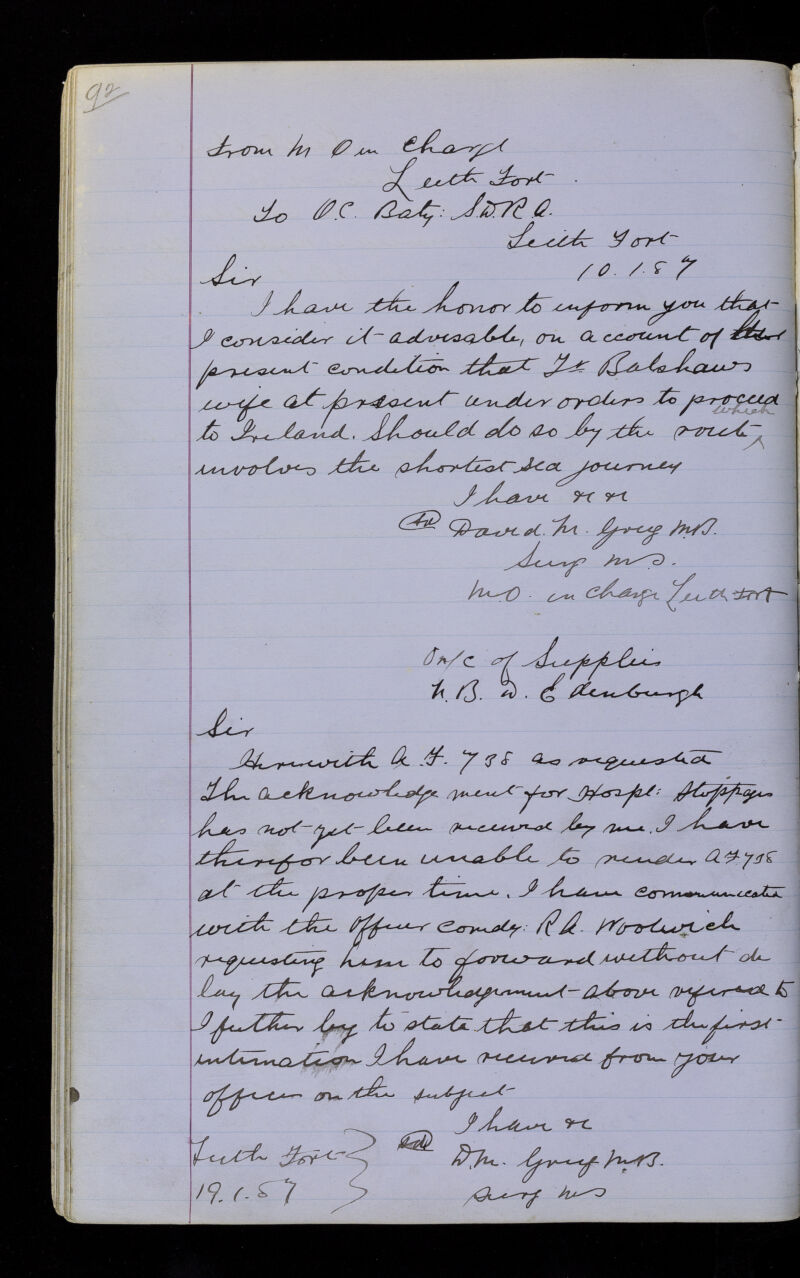 92
From M O in Charge
Leith Fort.
To O.C. Baty: S.D.R.A.
Leith Fort
10.1.87
Sir
I have the honor to inform you that
I consider it advisable, on account of
present condition that Balshaws
wife at present under orders to proceed
which
to Ireland. Should do so by the route
involves the shortest sea journey
I have &c &c
(sd) David. M. Greig M.B.
Surg M.S.
M.O. in charge Leith Fort
O in/c of Supplies
N.B.D. Edenburgh
Sir
Herewith A.F. 738 as requested
The acknowledgement for Hospl: Stoppages
has not yet been received by me. I have
therefor been unable to render A F 738
at the proper time. I have communicated
with the Officer comdg: R A. Woolwich
requesting him to forward without de
lay the acknowledgement above refered to
I further beg to state that this is the first
intimation I have received from your
offices on the subject
I have &c
Leith Fort (sd) D.M. Greig M.B.
19.1.87 Surg MS